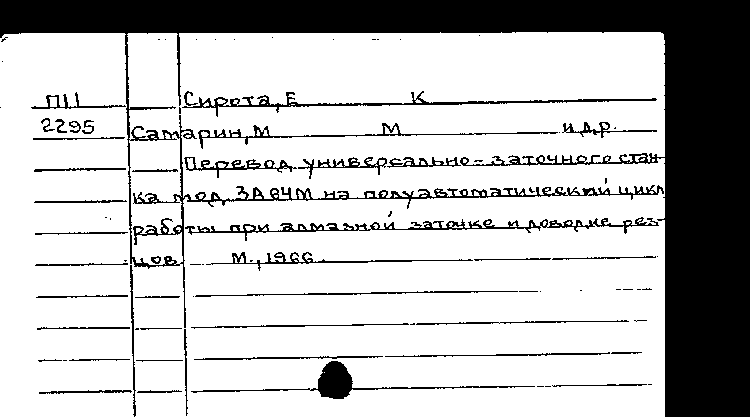 П11 Сирота, Е К
2295 Самарин, М М и др.
Перевод универсально-заточного стан-
ка мод. 3А64М на полуавтоматический цикл
работы при алмазной заточке и доводке рез-
цов М., 1966.